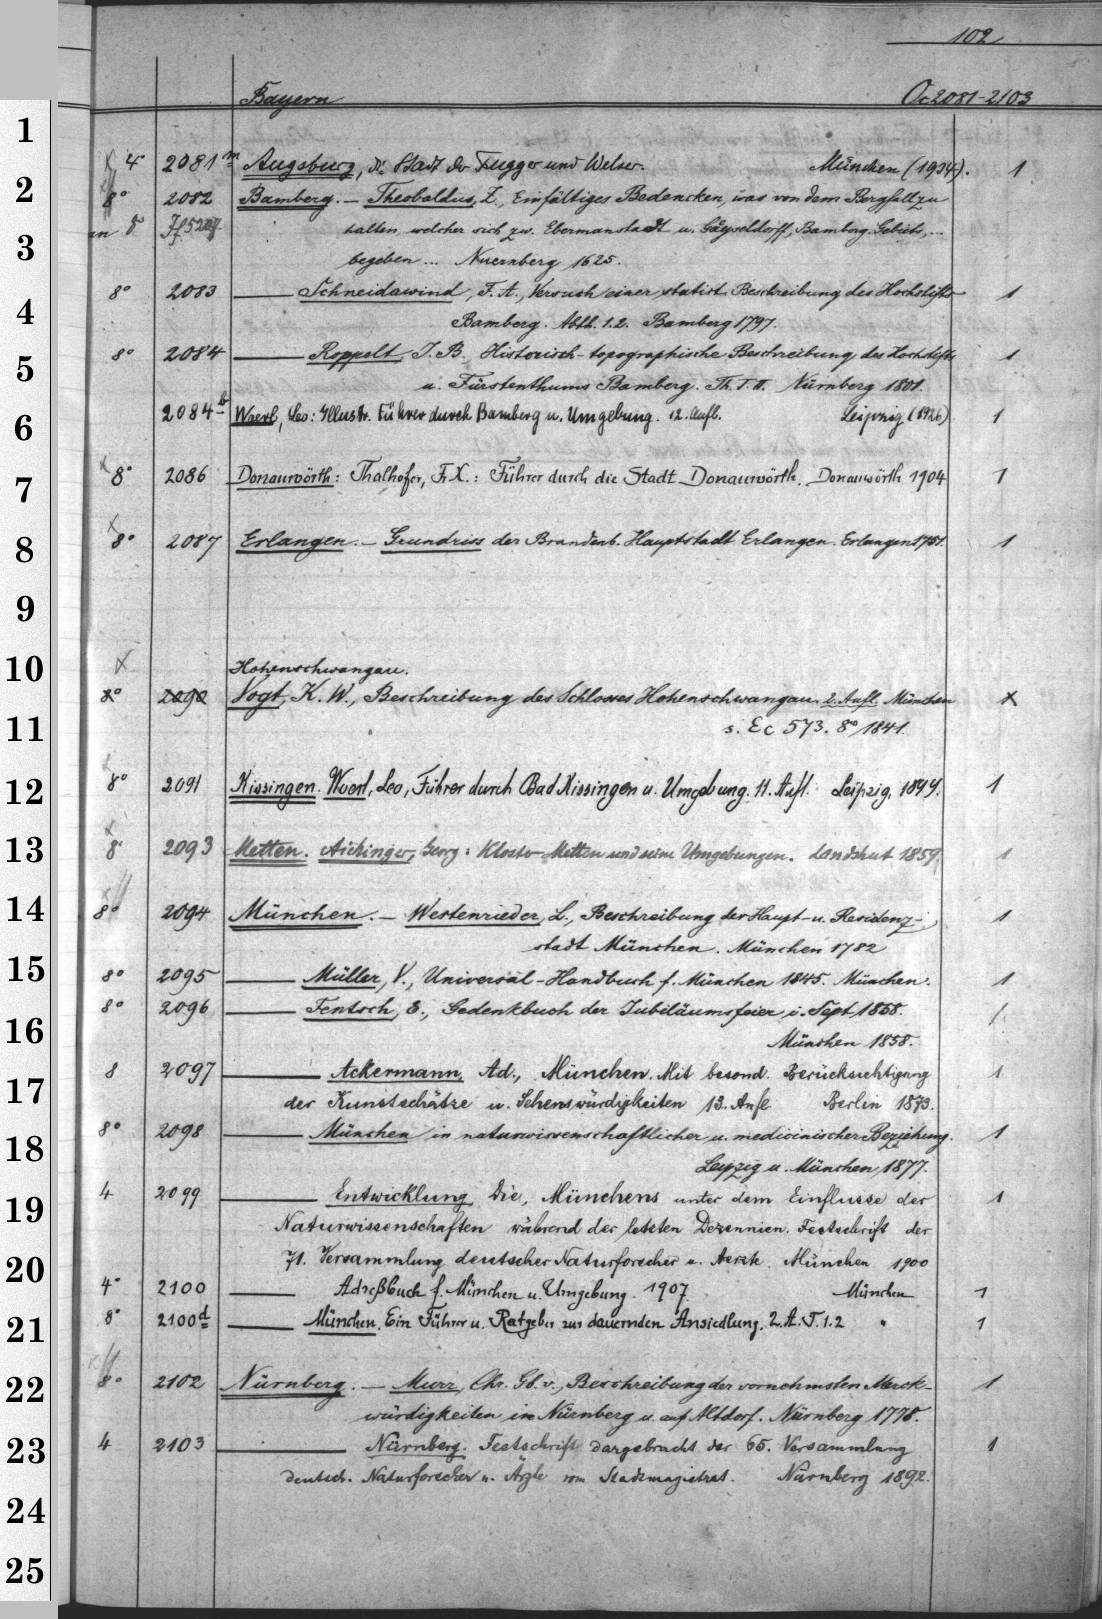 102
Bayern Oc 2081-2103
1
4° 2081m Augsburg, Die Stadt der Fugger und Welser. München (1934). 1
2
8° 2082 Bamberg. — Theobaldus, Z., Einfältiges Bedencken, was von dem Bergfall zu
an 8° Jf 5207 halten, welcher sich zw. Ebermanstadt u. Gayseldorff, Bamberg. Gebiets, ...
3
begeben ... Nuernberg 1625.
8° 2083 — Schneidawind, F. A., Versuch einer statist. Beschreibung des Hochstifts 1
4
Bamberg. Abth. 1.2. Bamberg 1797.
8° 2084 — Roppelt J. B. Historisch-topographische Beschreibung des Hochstifts 1
5
u. Fürstenthums Bamberg. Th. I. II. Nürnberg 1801.
6
2084b Woerl, Leo: Illustr. Führer durch Bamberg u. Umgebung. 12. Aufl. Leipzig (1926) 1
8° 2086 Donauwörth: Thalhofer, F. X.: Führer durch die Stadt Donauwörth. Donauwörth 1904 1
7
8° 2087 Erlangen. — Grundriss der Brandenb. Hauptstadt Erlangen. Erlangen 1751. 1
8
9
10
Hohenschwangau.
8° 2090 Vogt, K. W., Beschreibung des Schlosses Hohenschwangau. 2. Aufl. München
11
s. Ec 573. 8° 1841.
12
8° 2091 Kissingen. Woerl, Leo, Führer durch Bad Kissingen u. Umgebung. 11. Aufl. Leipzig, 1899. 1
13
8° 2093 Metten. Aichinger, Georg: Kloster Metten und seine Umgebungen. Landshut 1859. 1
14
8° 2094 München. — Westenrieder, L., Beschreibung der Haupt- u. Residenz- 1
stadt München. München 1782
15
8° 2095 — Müller, V., Universal-Handbuch f. München 1845. München. 1
8° 2096 — Fentsch, E., Gedenkbuch der Jubiläumsfeier i. Sept. 1858. 1
16
München 1858.
8 2097 — Ackermann, Ad., München. Mit besond. Berücksichtigung 1
17
der Kunstschätze u. Sehenswürdigkeiten 13. Aufl Berlin 1873.
8° 2098 — München in naturwissenschaftlicher u. medicinischer Beziehung. 1
18
Leipzig u. München, 1877.
4 2099 — Entwicklung, Die, Münchens unter dem Einflusse der 1
19
Naturwissenschaften während der letzten Dezennien. Festschrift der
71. Versammlung deutscher Naturforscher u. Aerzte. München 1900
20
4° 2100 — Adreßbuch f. München u. Umgebung. 1907 München 1
21
8° 2100d — München. Ein Führer u. Ratgeber zur dauernden Ansiedlung. 2. A. T. 1.2 " 1
22
8° 2102 Nürnberg. — Murr, Chr. Gl. v., Beschreibung der vornehmsten Merck- 1
würdigkeiten in Nürnberg u. auf Altdorf. Nürnberg 1778.
23
4 2103 — Nürnberg. Festschrift dargebracht der 65. Versammlung 1
deutsch. Naturforscher u. Ärzte vom Stadtmagistrat. Nürnberg 1892.
24
25